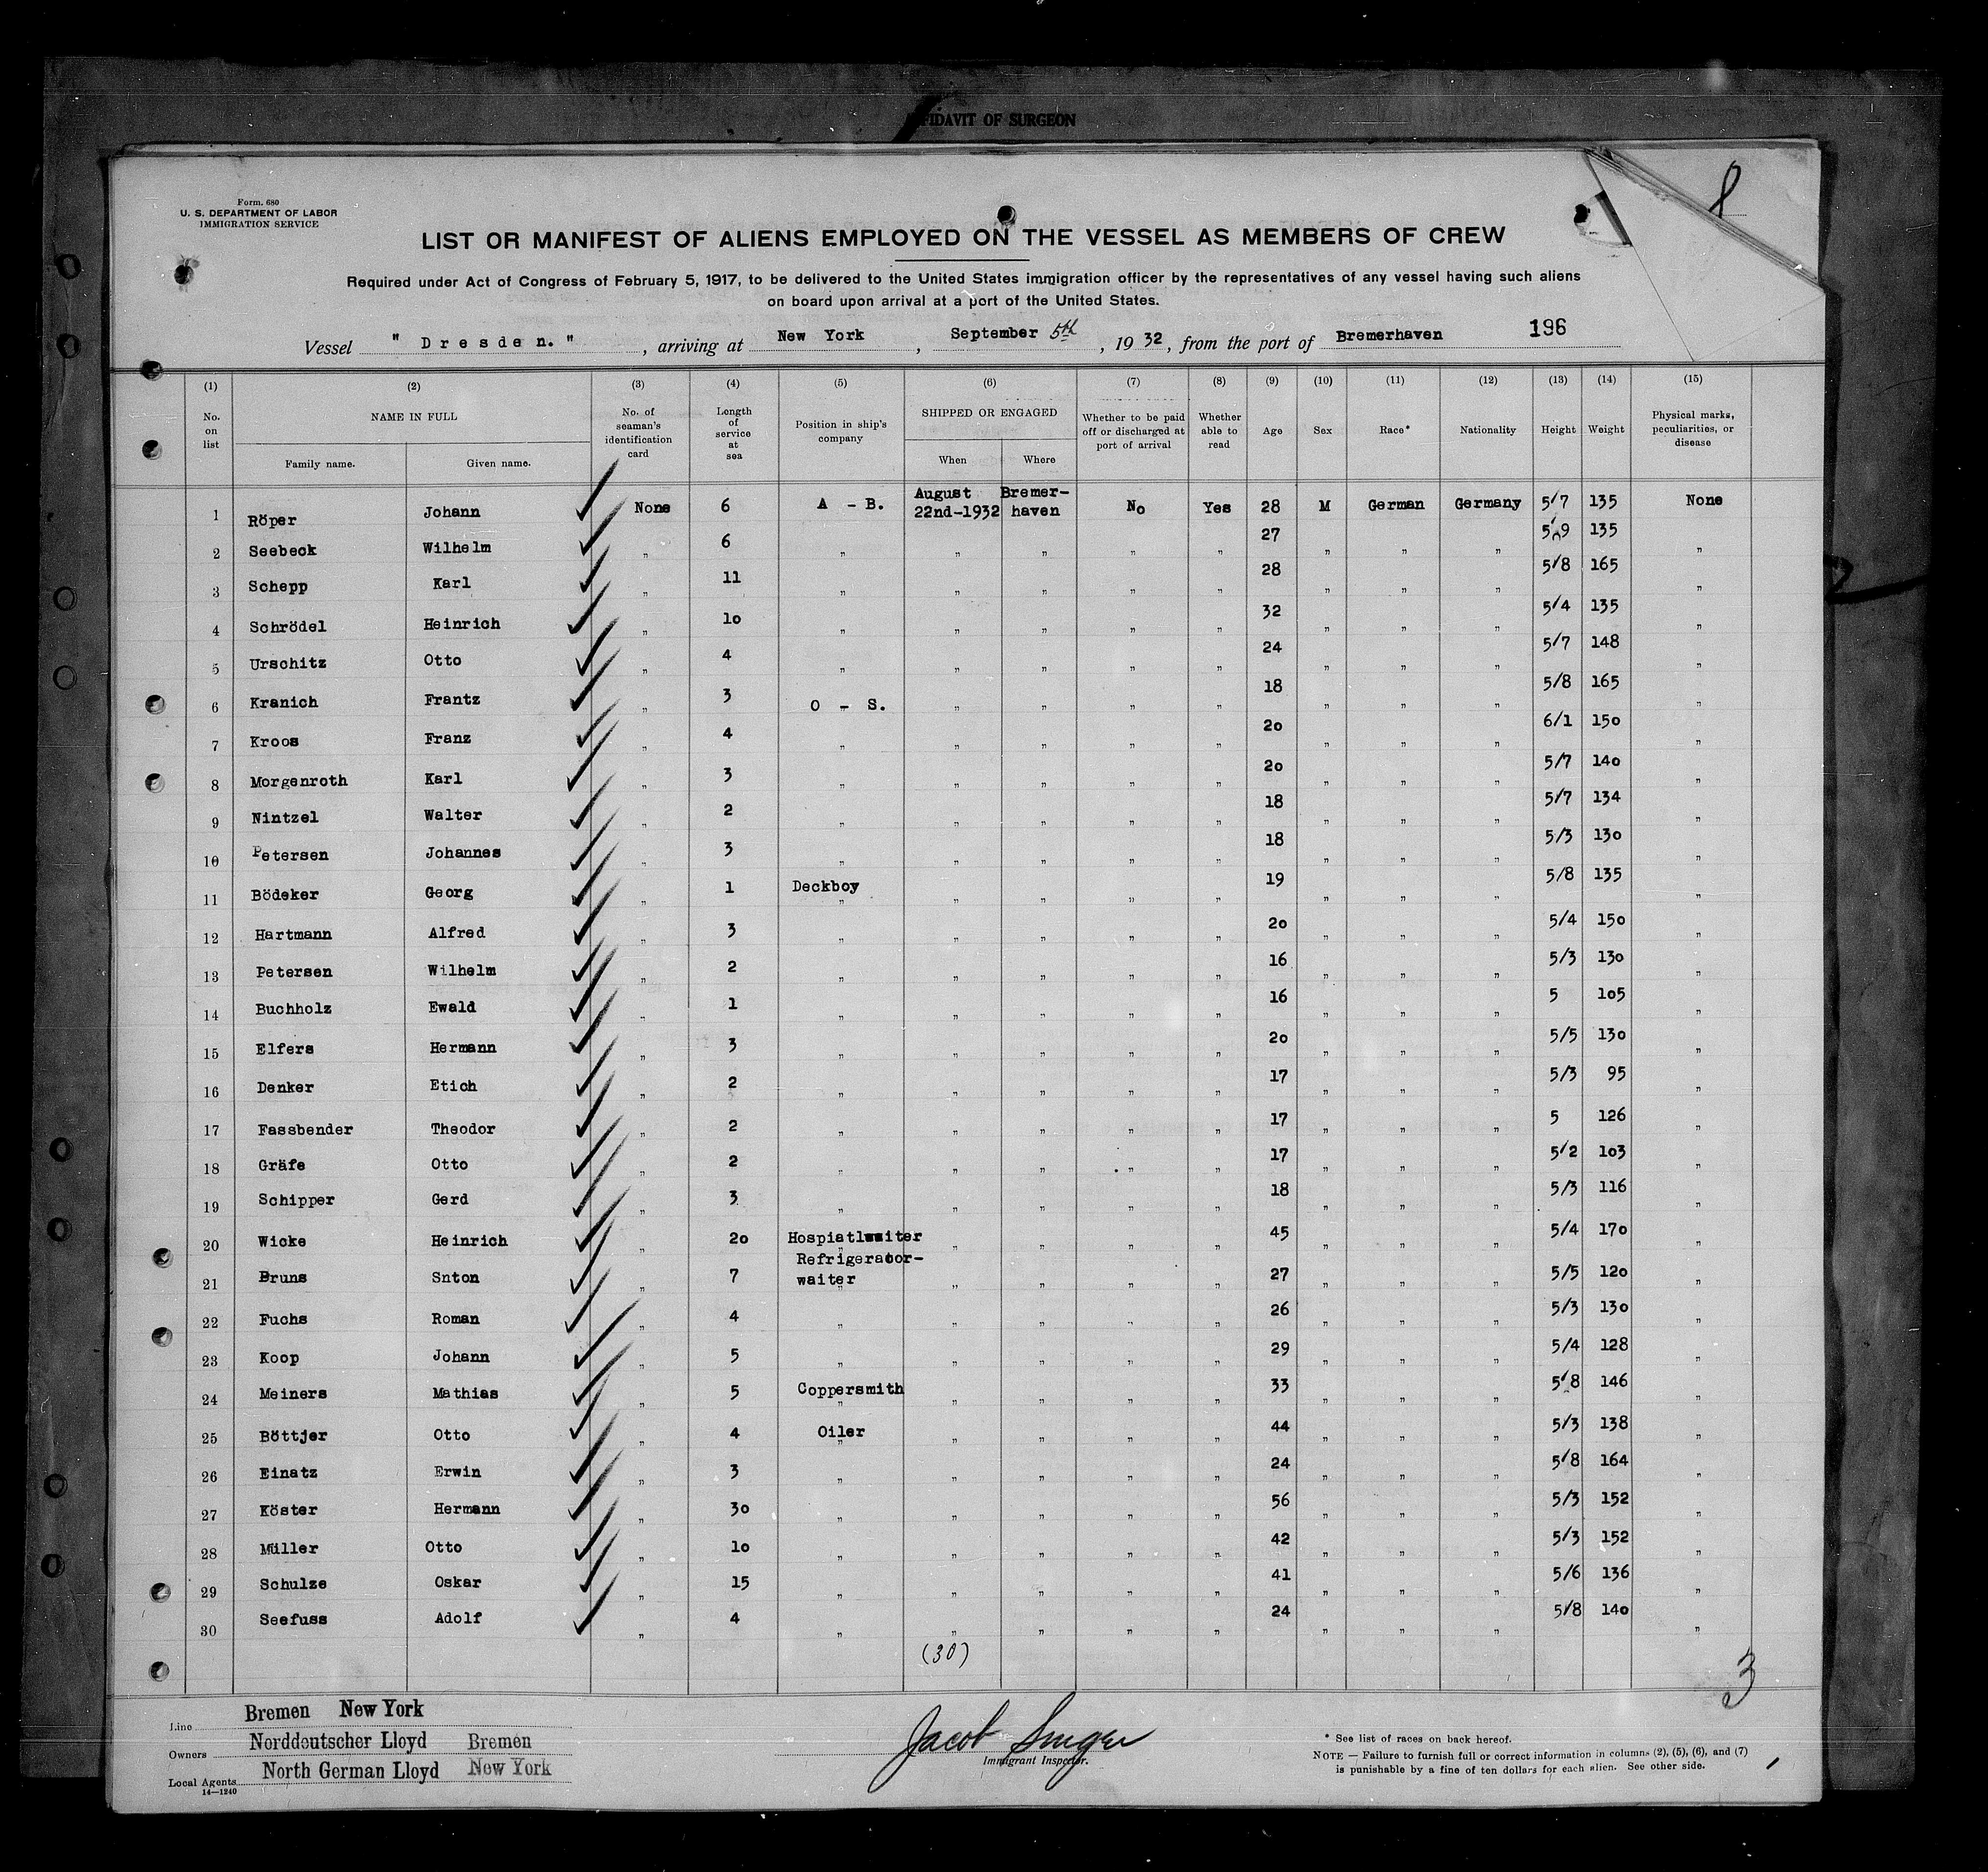 FIDAVIT OF SURGEON
8
Form. 680
U. S. DEPARTMENT OF LABOR
IMMIGRATION SERVICE
LIST OR MANIFEST OF ALIENS EMPLOYED ON THE VESSEL AS MEMBERS OF CREW
Required under Act of Congress of February 5, 1917, to be delivered to the United States immigration officer by the representatives of any vessel having such aliens
on board upon arrival at a port of the United States.
Vessel " Dresden. " , arriving at New York , September 5th , 1932, from the port of Bremerhaven 196
(1) (2) (3) (4) (5) (6) (7) (8) (9) (10) (11) (12) (13) (14) (15)
No. on list NAME IN FULL Family name. Given name. No. of seaman's identification card Length of service at sea Position in ship's company SHIPPED OR ENGAGED When Where Whether to be paid off or discharged at port of arrival Whether able to read Age Sex Race* Nationality Height Weight Physical marks, peculiarities, or disease
1 Röper Johann None 6 A - B. August 22nd-1932 Bremer-haven No Yes 28 M German Germany 5/7 135 None
2 Seebeck Wilhelm " 6 " " " " " 27 " " " 5/9 135 "
3 Schepp Karl " 11 " " " " " 28 " " " 5/8 165 "
4 Schrödel Heinrich " 10 " " " " " 32 " " " 5/4 135 "
5 Urschitz Otto " 4 " " " " " 24 " " " 5/7 148 "
6 Kranich Frantz " 3 O - S. " " " " 18 " " " 5/8 165 "
7 Kroos Franz " 4 " " " " " 20 " " " 6/1 150 "
8 Morgenroth Karl " 3 " " " " " 20 " " " 5/7 140 "
9 Nintzel Walter " 2 " " " " " 18 " " " 5/7 134 "
10 Petersen Johannes " 3 " " " " " 18 " " " 5/3 130 "
11 Bödeker Georg " 1 Deckboy " " " " " 19 " " " 5/8 135 "
12 Hartmann Alfred " 3 " " " " " 20 " " " 5/4 150 "
13 Petersen Wilhelm " 2 " " " " " 16 " " " 5/3 130 "
14 Buchholz Ewald " 1 " " " " " 16 " " " 5 105 "
15 Elfers Hermann " 3 " " " " " 20 " " " 5/5 130 "
16 Denker Etich " 2 " " " " " 17 " " " 5/3 95 "
17 Fassbender Theodor " 2 " " " " " 17 " " " 5 126 "
18 Gräfe Otto " 2 " " " " " 17 " " " 5/2 103 "
19 Schipper Gerd " 3 " " " " " 18 " " " 5/3 116 "
20 Wicke Heinrich " 20 Hospiatlwaiter " " " " " 45 " " " 5/4 170 "
21 Bruns Snton " 7 Refrigerator-waiter " " " " " 27 " " " 5/5 120 "
22 Fuchs Roman " 4 " " " " " 26 " " " 5/3 130 "
23 Koop Johann " 5 " " " " " 29 " " " 5/4 128 "
24 Meiners Mathias " 5 Coppersmith " " " " " 33 " " " 5/8 146 "
25 Böttjer Otto " 4 Oiler " " " " " 44 " " " 5/3 138 "
26 Einatz Erwin " 3 " " " " " 24 " " " 5/8 164 "
27 Köster Hermann " 30 " " " " " 56 " " " 5/3 152 "
28 Müller Otto " 10 " " " " " 42 " " " 5/3 152 "
29 Schulze Oskar " 15 " " " " " 41 " " " 5/6 136 "
30 Seefuss Adolf " 4 " " " " " 24 " " " 5/8 140 "
(30)
3
Line Bremen New York
Owners Norddeutscher Lloyd Bremen
Local Agents North German Lloyd New York
14—1240
Jacob Singer
Immigrant Inspector.
* See list of races on back hereof.
NOTE — Failure to furnish full or correct information in columns (2), (5), (6), and (7)
is punishable by a fine of ten dollars for each alien. See other side.